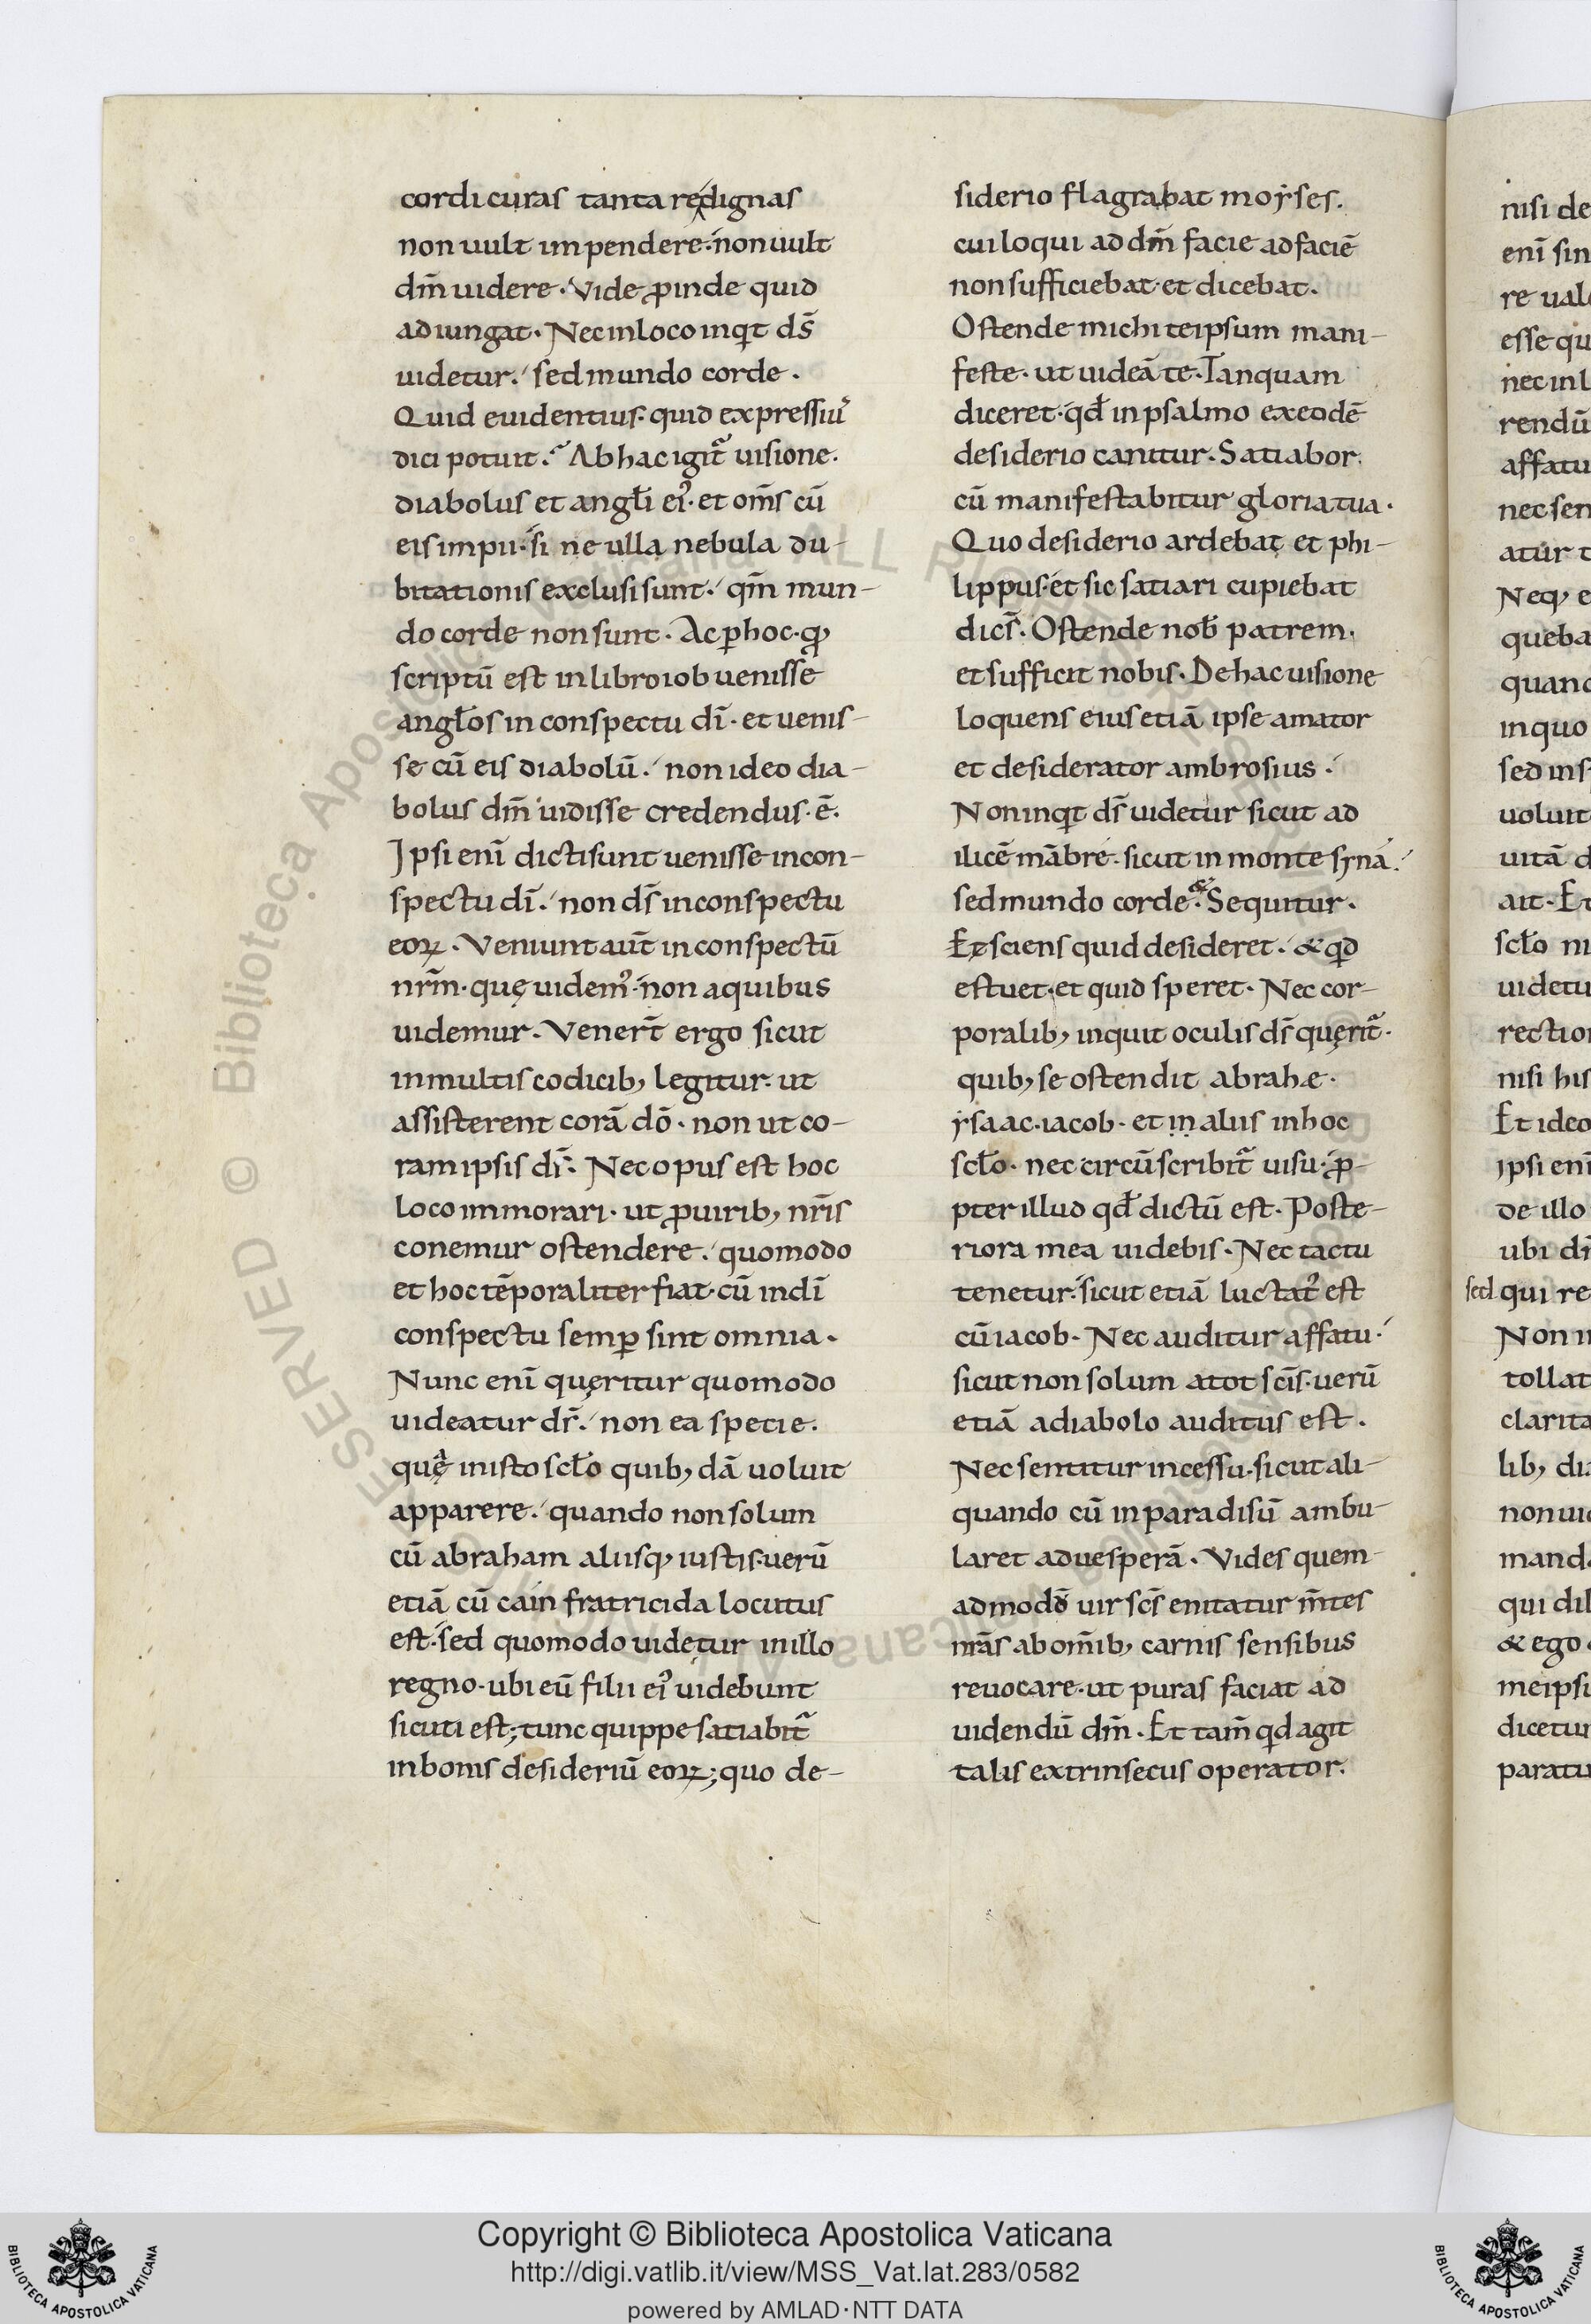 cordi curas tanta re dignas
non uult impendere. non uult
dm̄ uidere. Vide ꝓinde quid
adiungat. Nec in loco inqt ds̄
uidetur. sed mundo corde.
Quid euidentius. quid expressiuꝰ
dici potuit. Ab hac igit᷑ uisione.
diabolus et angłi eiꝰ. et om̄s cū
eis impii. si ne ulla nebula du-
bitationis exclusi sunt. qm̄ mun-
do corde non sunt. Ac ꝑ hoc. ꝙ
scriptū est in libro iob uenisse
angłos in conspectu dī. et uenis-
se cū eis diabolū. non ideo dia-
bolus dm̄ uidisse credendus. ē.
Ipsi enī dicti sunt uenisse in con-
spectu dī. non ds̄ in conspectu
eoꝝ. Veniunt aut̄ in conspectū
nrm̄. quę uidemꝰ. non a quibus
uidemur. Venert̄ ergo sicut
in multis codicib, legitur. ut
assisterent corā dō. non ut co-
ram ipsis ds̄. Nec opus est hoc
loco immorari. ut ꝓ uirib, nrīs
conemur ostendere. quomodo
et hoc tēporaliter fiat. cū in dī
conspectu semꝑ sint omnia.
Nunc enī quęritur quomodo
uideatur ds̄. non ea specie.
quę in isto scło quib,dā uoluit
apparere. quando non solum
cū abraham aliisq, iustis. uerū
etiā cū cain fratricida locutus
est. sed quomodo uidetur in illo
regno. ubi eū filii eiꝰ uidebunt
sicuti est; tunc quippe satiabit᷑
in bonis desideriū eoꝝ; quo de-
siderio flagrabat moẏses.
cui loqui ad dm̄ facie ad faciē
non sufficiebat. et dicebat.
Ostende michi te ipsum mani-
feste. ut uideā te. Tanquam
diceret. qđ in psalmo ex eodē
desiderio canitur. Satiabor.
cū manifestabitur gloria tua.
Quo desiderio ardebat et phi-
lippus. et sic satiari cupiebat
dicēs. Ostende nob̄ patrem.
et sufficit nobis. De hac uisione
loquens eius etiā ipse amator
et desiderator ambrosius.
Non inqt ds̄ uidetur sicut ad
ilicē mābre. sicut in monte syna.
sed mundo corde. & Sequitur.
Et sciens quid desideret. & qd
estuet. et quid speret. Nec cor-
poralib, inquit oculis ds̄ quęrit᷑.
quib, se ostendit abrahæ.
ẏsaac. iacob. et in aliis in hoc
scło. nec circūscribit᷑ uisu. ꝓ-
pter illud qđ dictū est. Poste-
riora mea uidebis. Nec tactu
tenetur. sicut etiā luctatꝰ est
cū iacob. Nec auditur affatu.
sicut non solum a tot scīs. uerū
etiā a diabolo auditus est.
Nec sentitur incessu. sicut ali-
quando cū in paradisū ambu-
laret ad uesperā. Vides quem-
admodū uir scs̄ enitatur m̄tes
nrās ab om̄ib, carnis sensibus
reuocare. ut puras faciat ad
uidendū dm̄. Et tam̄ qd agit
talis extrinsecus operator.
nisi de
enī sin
re uale
esse qu
nec in l
rendū
affatu
nec sen
atur t
Neq, e
queba
quand
in quo
sed ins
uoluit
uitā d
ait. Et
scło ni
uidetu
rectio
nisi his
Et ideo
ipsi enī
de illo
ubi dn̄
sed qui re
Non in
tollat
clarita
lib, dia
non uid
manda
qui dil
& ego
me ipsu
dicetur
paratu
Copyright © Biblioteca Apostolica Vaticana
http://digi.vatlib.it/view/MSS_Vat.lat.283/0582
powered by AMLAD·NTT DATA